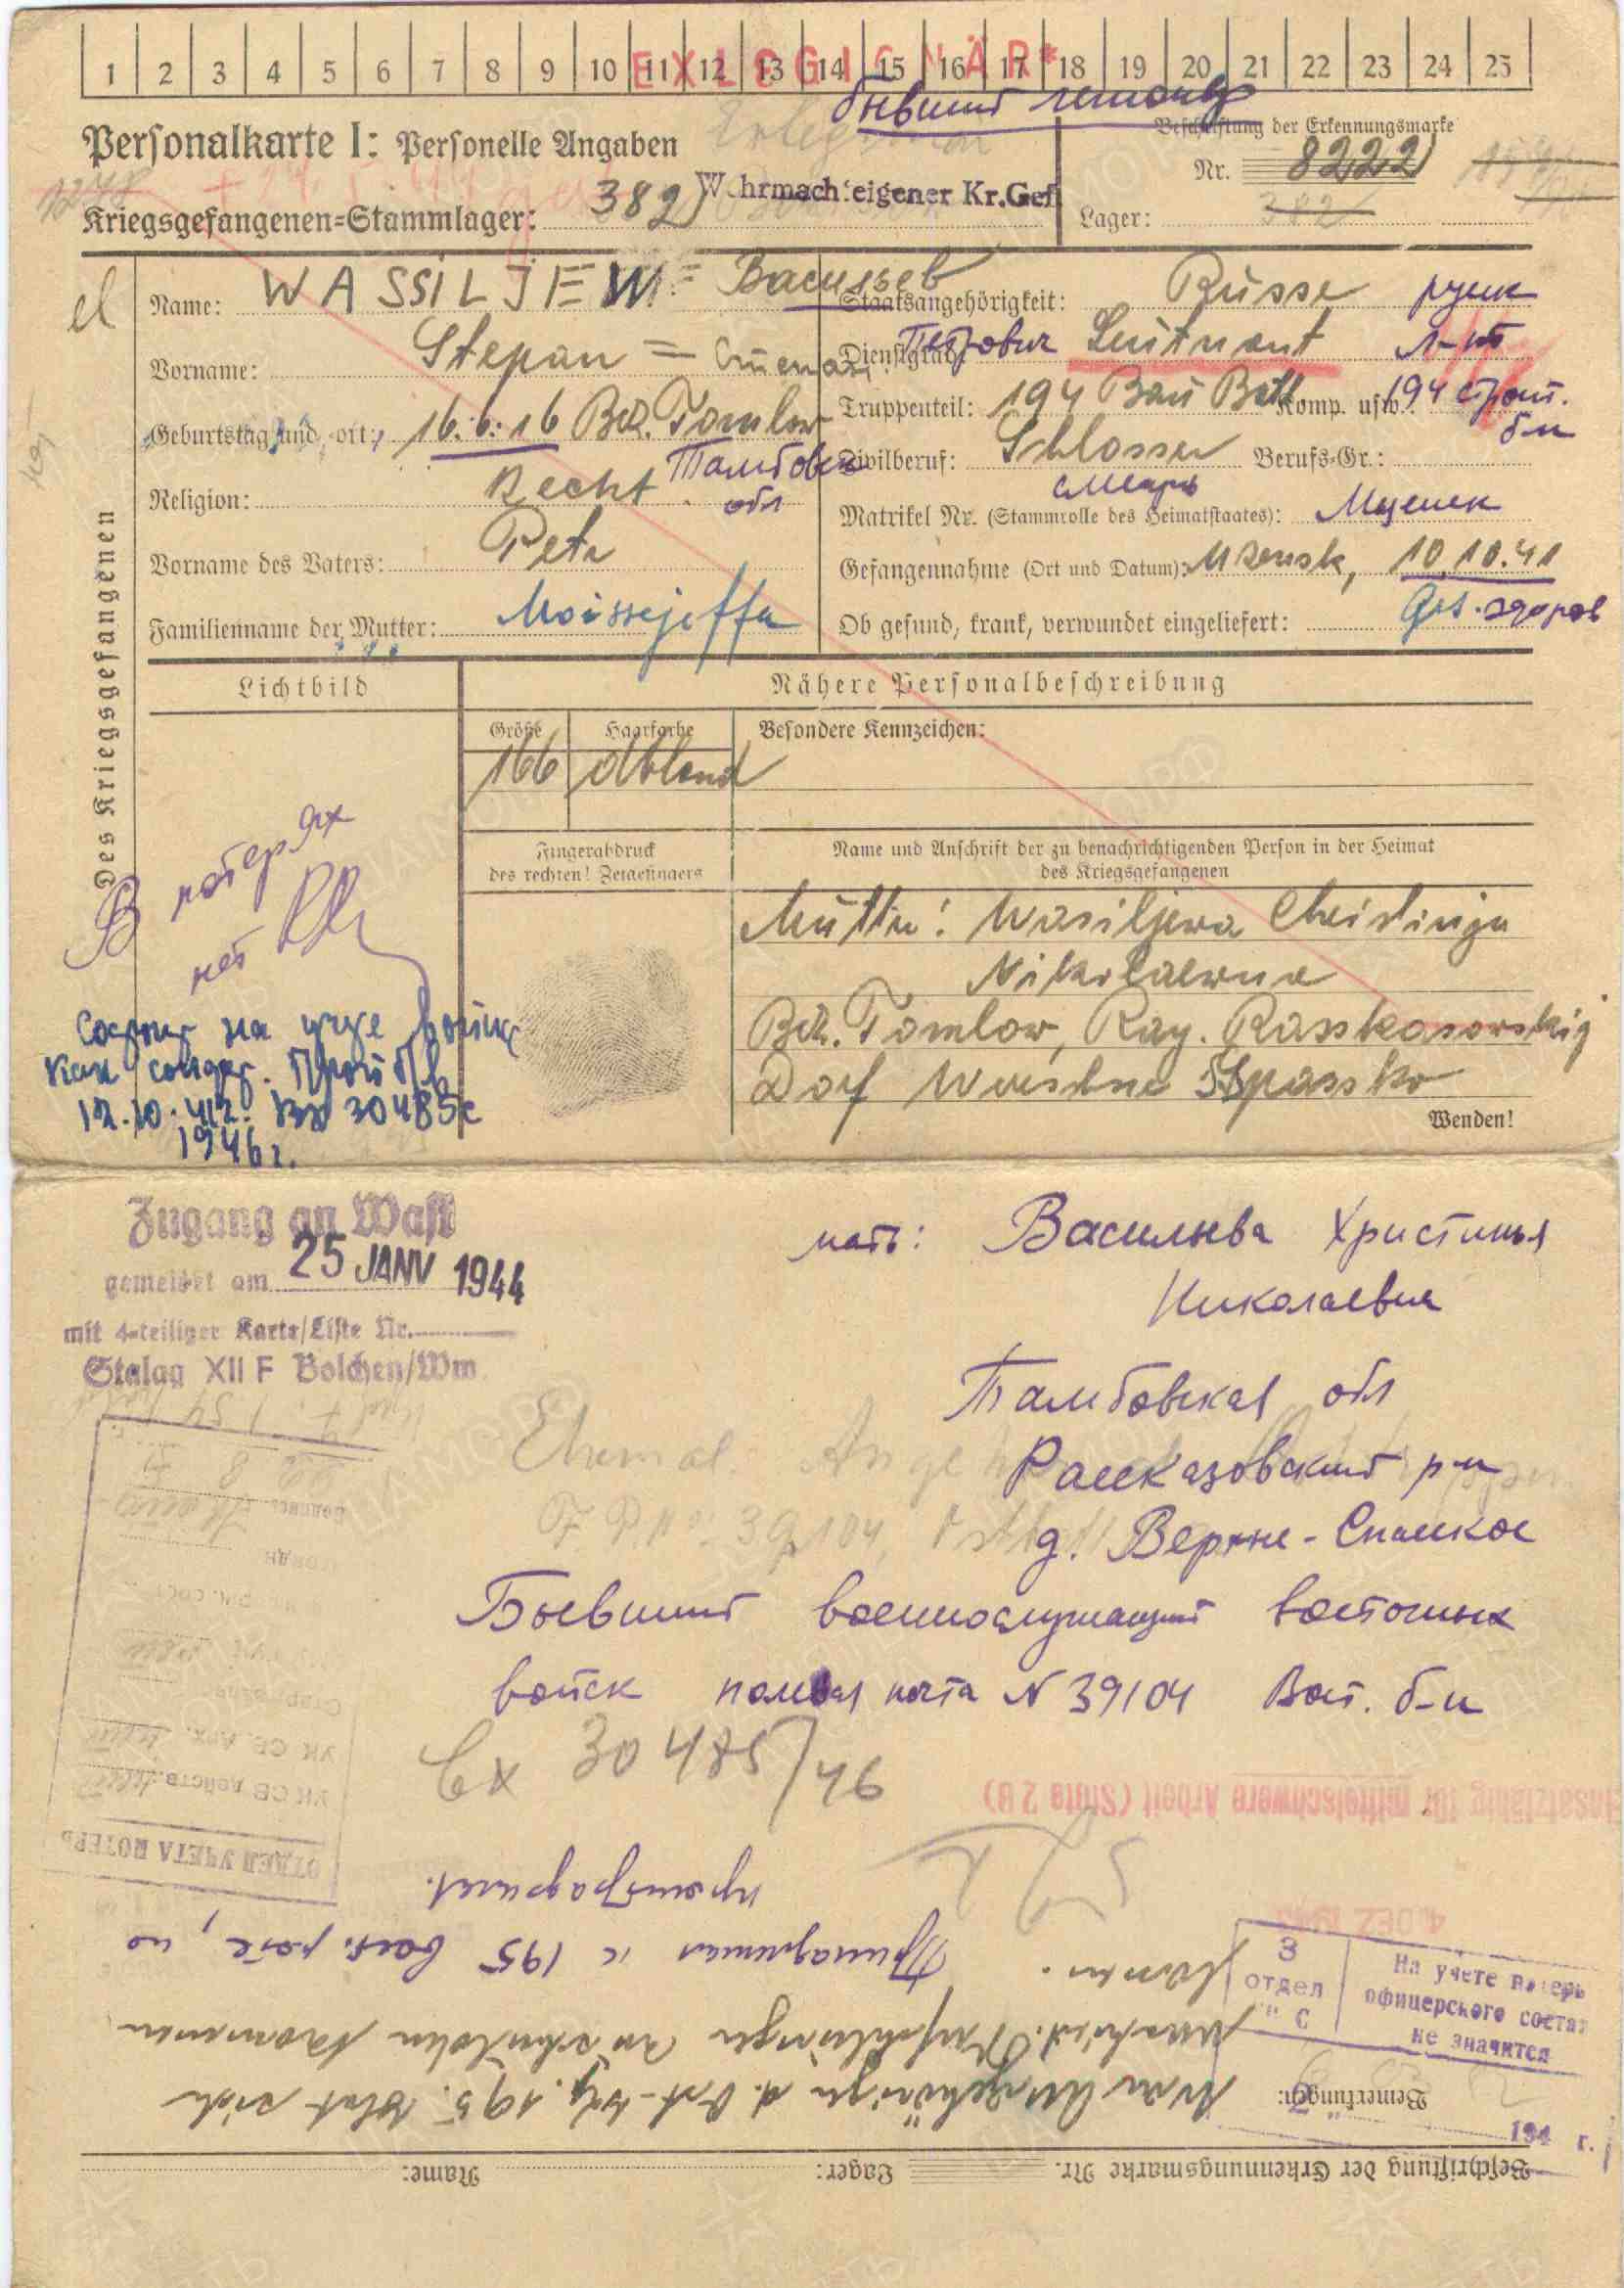 1 2 3 4 5 6 7 8 9 10 11 12 13 14 15 16 17 18 19 20 21 22 23 24 25
EXLEGIONÄR*
бывший
Personalkarte I: Personelle Angaben
Beschriftung der Erkennungsmarke
Nr. 8222
Kriegsgefangenen=Stammlager: 382
Wehrmachteigener Kr.Gef
Lager: 382
Des Kriegsgefangenen
el
Name: WASSILJEW = Васильев
Staatsangehörigkeit: Russe русск
Vorname: Stepan = Степан Петрович
Dienstgrad: Leutnant л-нт
Geburtstag und =ort: 16.6.16 Bez. Tamlow
Тамбовск обл
Truppenteil: 194 Bau Batl Komp. usw.: 194 строит. б-н
Zivilberuf: Schlosser Berufs=Gr.:
слесарь
Religion: Recht.
Matrikel Nr. (Stammrolle des Heimatstaates):
Мценск
Vorname des Vaters: Petr
Gefangennahme (Ort und Datum): Mzensk, 10.10.41
Familienname der Mutter: Moissejeffa
Ob gesund, krank, verwundet eingeliefert: Ges. здоров
Lichtbild
Nähere Personalbeschreibung
Größe Haarfarbe Besondere Kennzeichen:
166 dblond
Fingerabdruck
des rechten! Zeigefingers
Name und Anschrift der zu benachrichtigenden Person in der Heimat
des Kriegsgefangenen
Mutter: Wasiljewa Christinja
Nikolaewna
Bez. Tamlow, Ray. Rasskasowskij
Dorf Werchne Spassko
Wenden!
В потерях
нет
Состоит на учете
как солдат.
12.10.41г. Вх 30485с
1946г.
Zugang an Wast
gemeldet am 25 JANV 1944
mit 4-teiliger Karte/Liste Nr.
Stalag XII F Bolchen/Wm
мать: Васильева Христинья
Николаевна
Тамбовская обл
Рассказовский р-н
д. Верхне-Спасское
Ehemal. Ange
F.P.Nr: 39104,
Бывший военнослужащий восточных
войск полевая почта N 39104 Вост. б-н
Вх 30485/46
Einsatzfähig für mittelschwere Arbeit (Stufe 2 B)
ОТДЕЛ УЧЕТА ПОТЕРЬ
УК СВ действ.
УК СВ. Арх.
подпись
4 DEZ 194
Принадлежал к 195 вост. роте, но
3 отдел "С"
На учете потерь
офицерского состава
не значится
194 г.
Bemerkungen: War Angehöriger d. Ost-Kp. 195. Hat sich
Beschriftung der Erkennungsmarke Nr. Lager: Name: